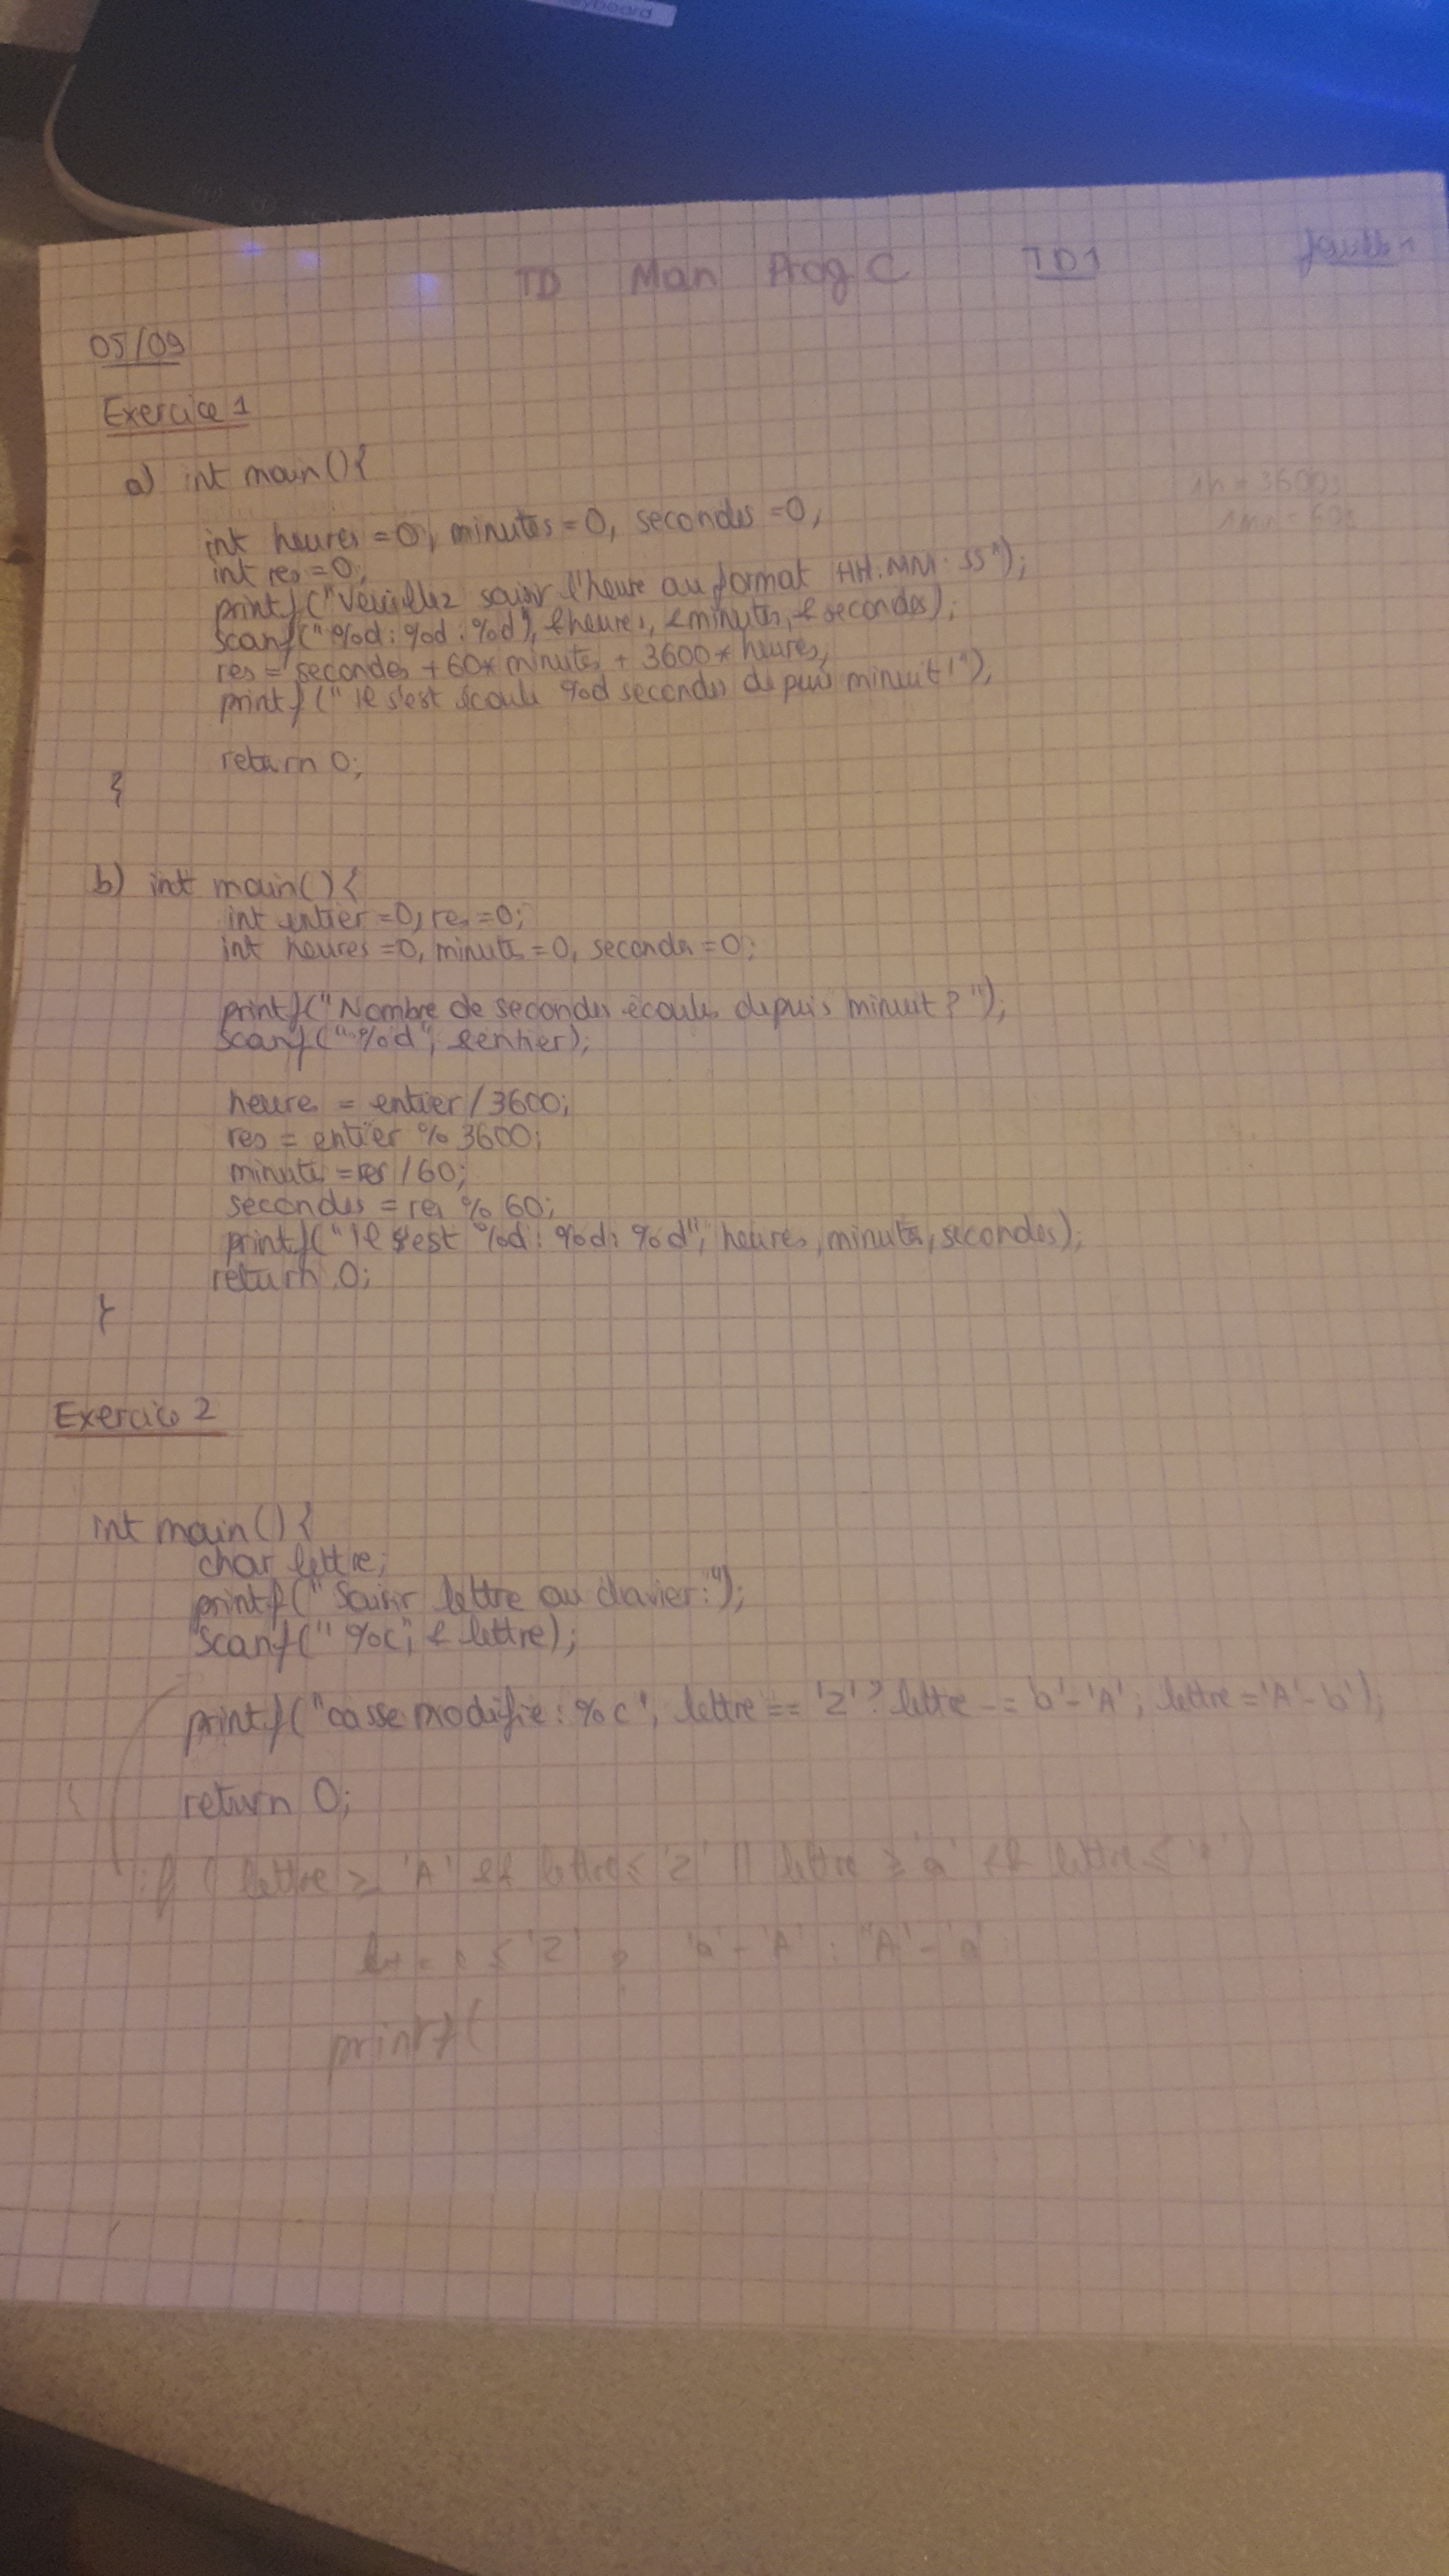 keyboard
TD Man Prog C TD1
05/09
Exercice 1
1h = 3600s
a) int main(){
int heures = 0, minutes = 0, secondes = 0;
int res = 0;
printf("Veuillez saisir l'heure au format HH:MM:SS");
scanf("%d:%d:%d", &heures, &minutes, &secondes);
res = secondes + 60* minutes + 3600* heures;
printf("Il s'est écoulé %d secondes depuis minuit!");
return 0;
}
b) int main(){
int entier = 0, res = 0;
int heures = 0, minutes = 0, secondes = 0;
printf("Nombre de secondes écoulés depuis minuit?");
scanf("%d", &entier);
heures = entier / 3600;
res = entier % 3600;
minutes = res / 60;
secondes = res % 60;
printf("Il est %d:%d:%d", heures, minutes, secondes);
return 0;
}
Exercice 2
int main(){
char lettre;
printf("Saisir lettre au clavier:");
scanf("%c", &lettre);
printf("casse modifie: %c", lettre == 'Z'? lettre -= 'b'-'A'; lettre = 'A'-'b');
return 0;
if ( lettre ≥ 'A' && lettre ≤ 'Z' || lettre ≥ 'a' && lettre ≤
≤ 'Z' ? 'a' - 'A' : 'A' - 'a'
printf(